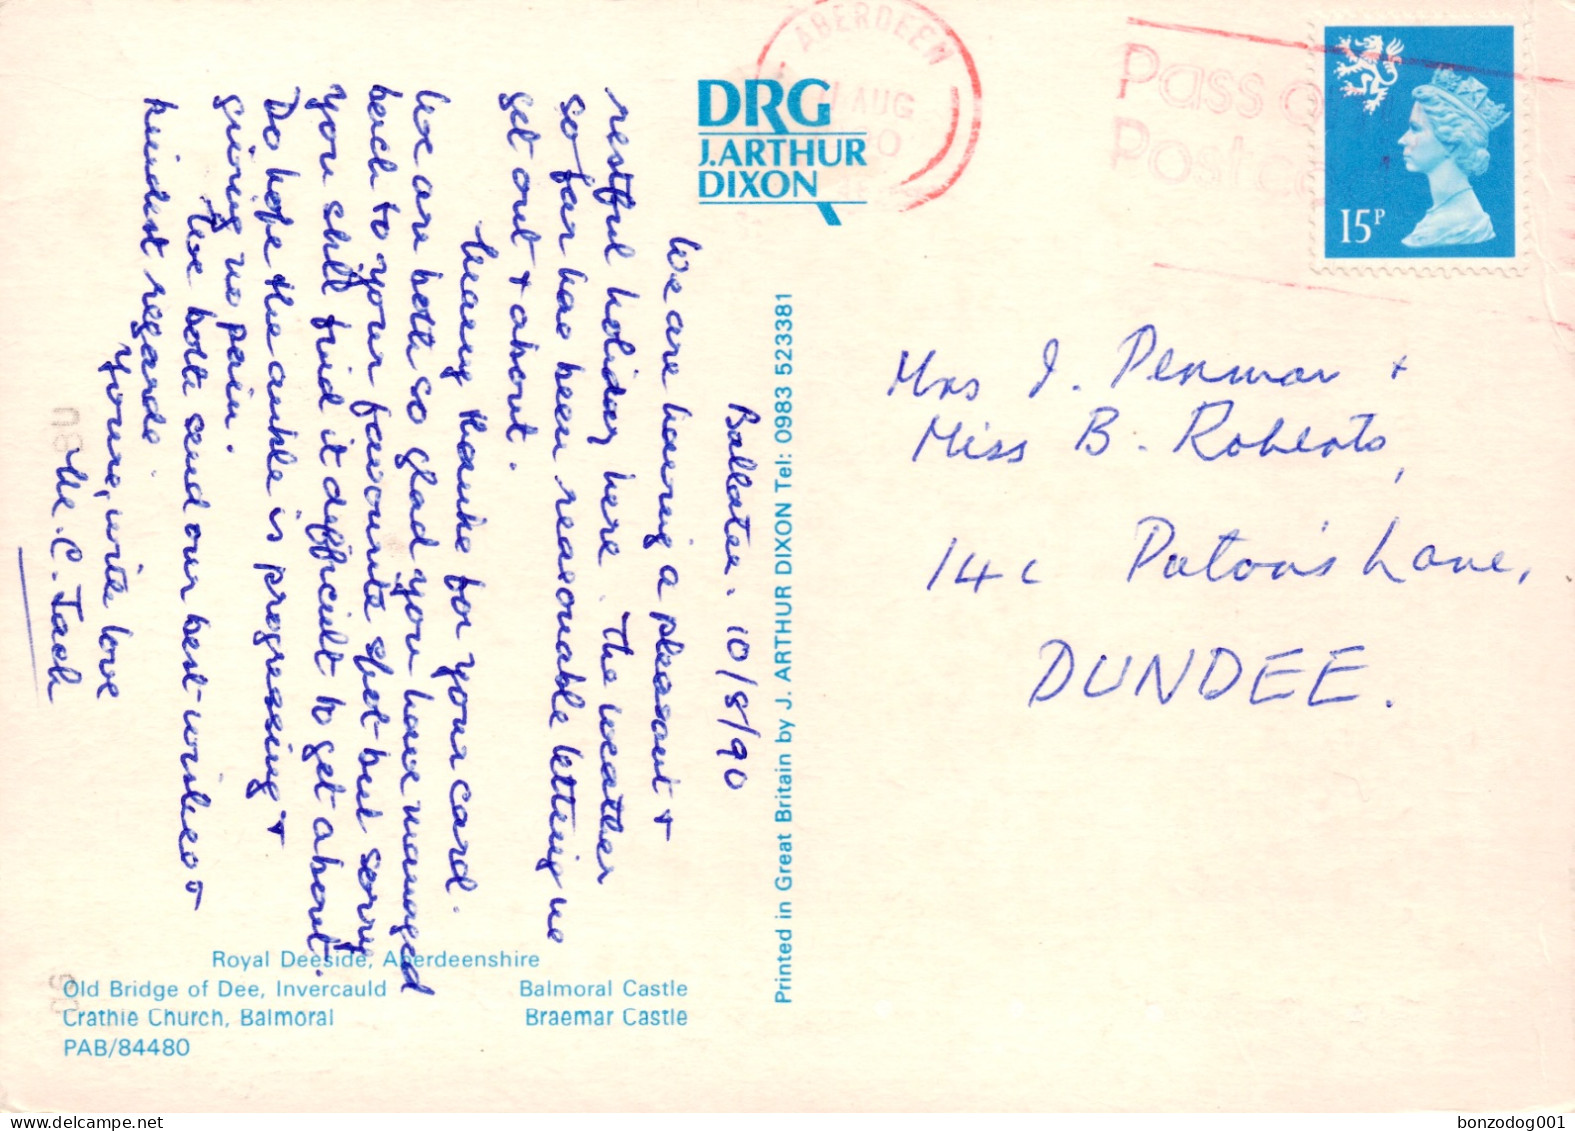 Ballater. 10/8/90
We are having a pleasant +
restful holiday here. The weather
so far has been reasonable letting us
get out + about.
Many thanks for your card.
We are both so glad you have managed
back to your favourite spot but sorry
you still find it difficult to get about.
Do hope the ankle is progressing +
giving no pain.
We both send our best wishes +
kindest regards.
Yours, with love
M. C. Jack
DRG
J.ARTHUR
DIXON
Printed in Great Britain by J. ARTHUR DIXON Tel: 0983 523381
Royal Deeside, Aberdeenshire
Old Bridge of Dee, Invercauld Balmoral Castle
Crathie Church, Balmoral Braemar Castle
PAB/84480
ABERDEEN
AUG
Pass
Postca
15P
Mrs J. Penman +
Miss B. Roberts,
14c Paton's Lane,
DUNDEE.
bonzodog001